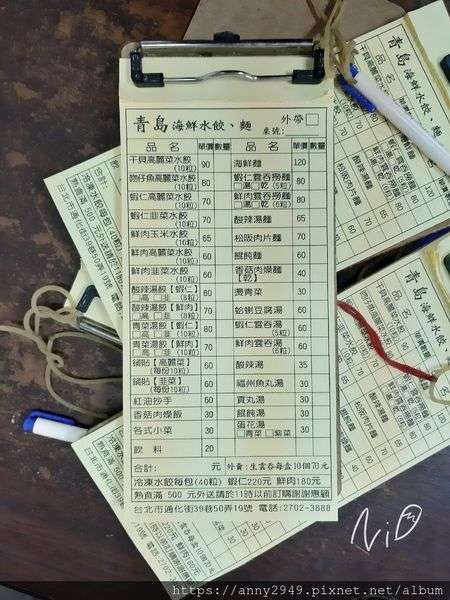 青島 海鮮水餃、麵 外帶□
桌號:
品名 單價 數量 品名 單價 數量
干貝高麗菜水餃(10粒) 90 海鮮麵 120
吻仔魚高麗菜水餃(10粒) 80 蝦仁雲吞撈麵 □湯□乾(5粒) 80
蝦仁高麗菜水餃(10粒) 70 鮮肉雲吞撈麵 □湯□乾(6粒) 80
蝦仁韭菜水餃(10粒) 70 酸辣湯麵 65
鮮肉玉米水餃(10粒) 65 松阪肉片麵 70
鮮肉高麗菜水餃(10粒) 60 餛飩麵 60
鮮肉韭菜水餃(10粒) 60 香菇肉燥麵【乾】 40
酸辣湯餃【蝦仁】□高□韭(8粒) 80 燙青菜 30
酸辣湯餃【鮮肉】□高□韭(8粒) 70 蛤蜊豆腐湯 60
青菜湯餃【蝦仁】□高□韭(10粒) 80 蝦仁雲吞湯(5粒) 60
青菜湯餃【鮮肉】□高□韭(10粒) 70 鮮肉雲吞湯(6粒) 60
鍋貼【高麗菜】(每份10粒) 60 酸辣湯 35
鍋貼【韭菜】(每份10粒) 60 福州魚丸湯 30
紅油抄手 60 貢丸湯 30
香菇肉燥飯 30 餛飩湯 30
各式小菜 30 蛋花湯 □青菜□紫菜 30
飲料 20
合計: 元 外賣:生雲吞每盒10個70元
冷凍水餃每包(40粒) 蝦仁220元 鮮肉180元
熟食滿 500 元外送請於11時以前訂購謝謝惠顧
台北市通化街39巷50弄19號 電話:2702-3888
NiO
https://anny2949.pixnet.net/album